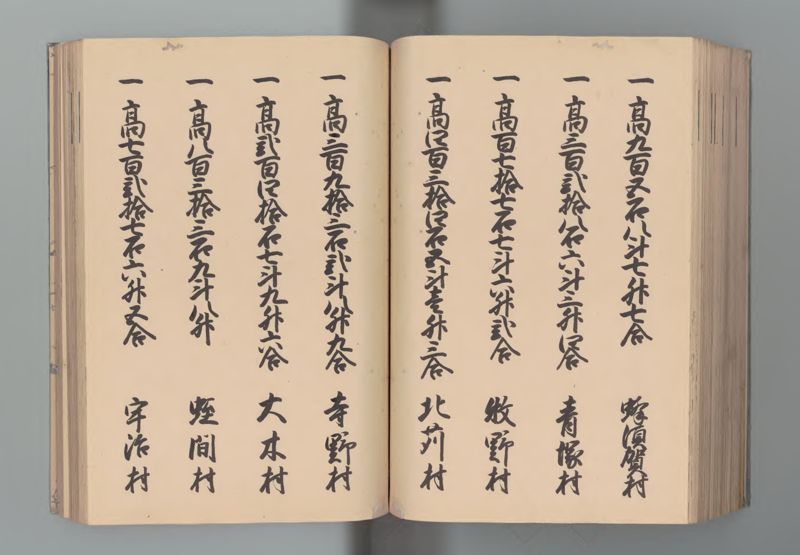 一 高九百五石八斗七升七合 蜂須賀村
一 高三百弐拾八石六斗三升四合 青塚村
一 高百七拾七石七斗六升弐合 牧野村
一 高四百三拾四石五斗壱升三合 北苅村
一 高三百九拾三石弐斗八升九合 寺野村
一 高弐百四拾石七斗九升六合 大木村
一 高八百三拾三石九斗八升 蛭間村
一 高七百弐拾七石六升五合 宇治村